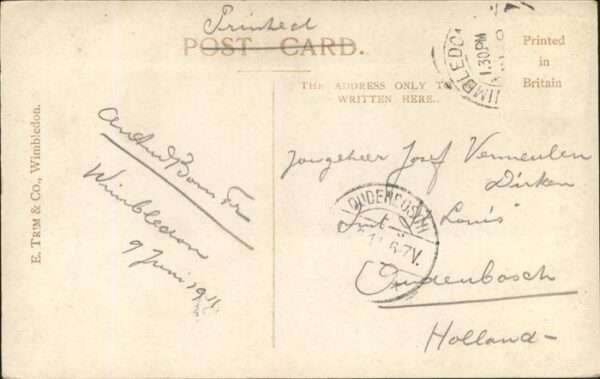 Printed
POST CARD.
THE ADDRESS ONLY TO
WRITTEN HERE.
Printed
in
Britain
WIMBLEDON
1.30PM
E. TRIM & CO., Wimbledon.
Wimbledon
9 Juni 1911
Jongeheer Josef Vermeulen
Dirken
Inst. St Louis
Oudenbosch
Holland-
OUDENBOSCH
6-7V.